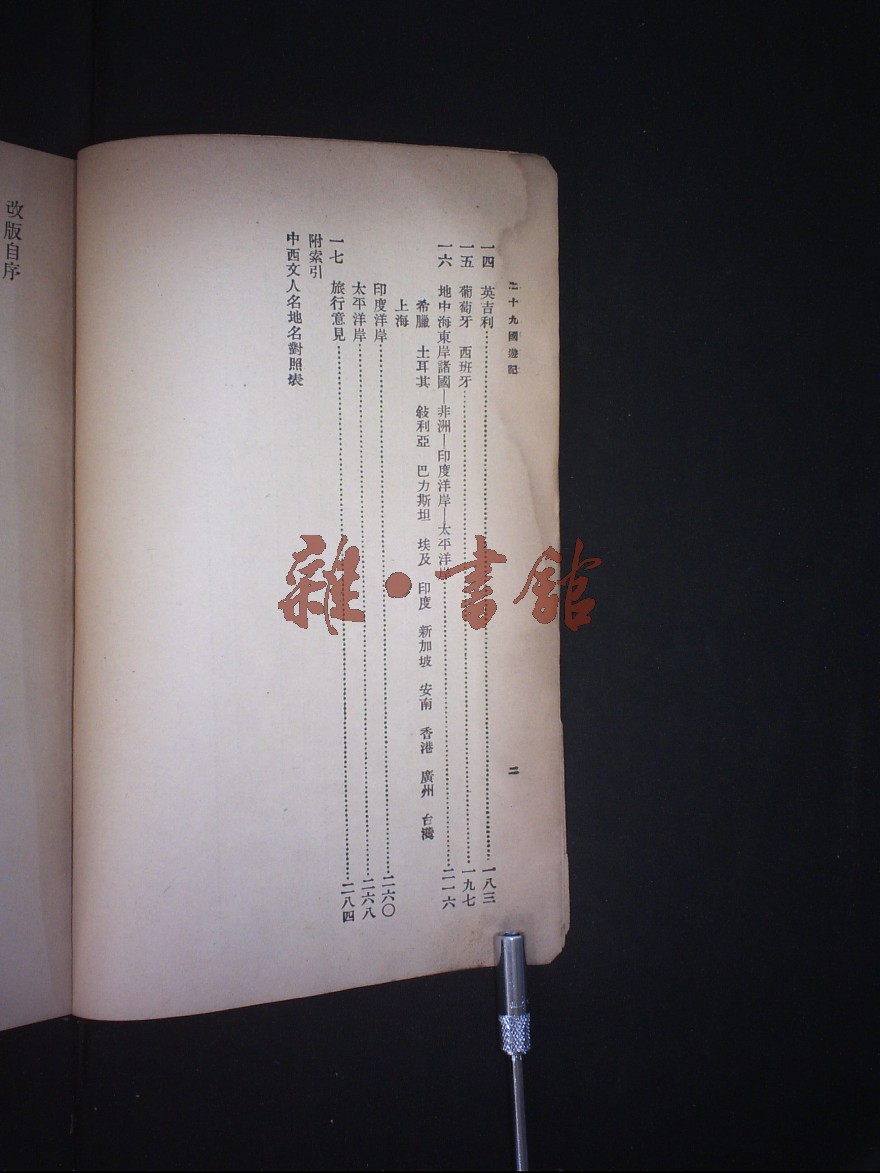 十九國遊記
二
一四 英吉利 一八三
一五 葡萄牙 西班牙 一九七
一六 地中海東岸諸國—非洲—印度洋岸—太平洋岸 二一六
希臘 土耳其 敍利亞 巴力斯坦 埃及 印度 新加坡 安南 香港 廣州 台灣
上海
印度洋岸 二六〇
太平洋岸 二六八
一七 旅行意見 二八四
附索引
中西文人名地名對照表
改版自序
雜·書館